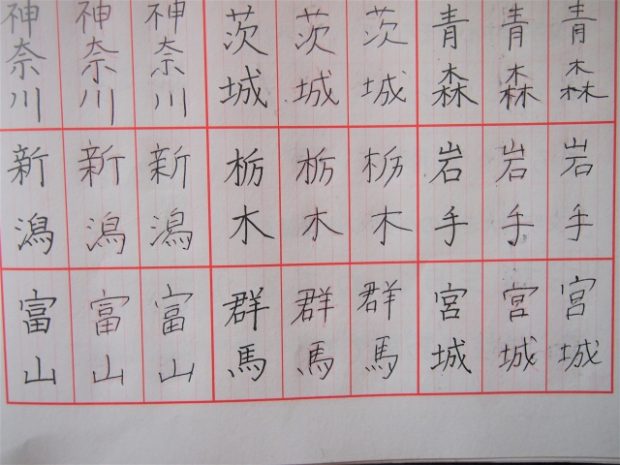 青森 岩手 宮城
青森 岩手 宮城
青森 岩手 宮城
茨城 栃木 群馬
茨城 栃木 群馬
茨城 栃木 群馬
神奈川 新潟 富山
神奈川 新潟 富山
神奈川 新潟 富山